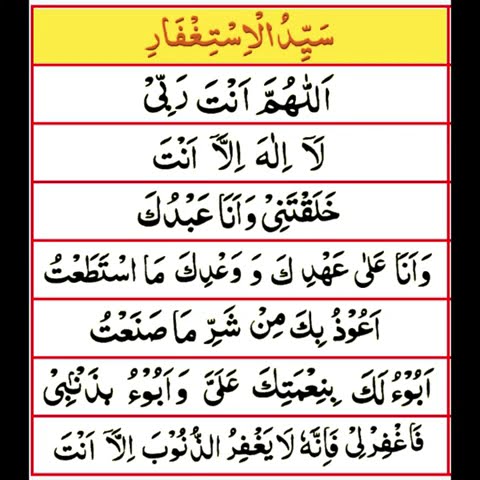 سَيِّدُ الْاِسْتِغْفَارِ
اَللّٰهُمَّ اَنْتَ رَبِّىْ
لَآ اِلٰهَ اِلَّآ اَنْتَ
خَلَقْتَنِىْ وَاَنَا عَبْدُكَ
وَاَنَا عَلٰى عَهْدِكَ وَ وَعْدِكَ مَا اسْتَطَعْتُ
اَعُوْذُ بِكَ مِنْ شَرِّ مَا صَنَعْتُ
اَبُوْءُ لَكَ بِنِعْمَتِكَ عَلَىَّ وَاَبُوْءُ بِذَنْۢبِىْ
فَاغْفِرْلِىْ فَاِنَّهٗ لَا يَغْفِرُ الذُّنُوْبَ اِلَّآ اَنْتَ